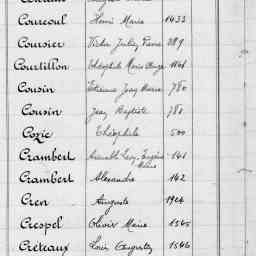 Courcoul Henri Marie 1433
Coursier Victor Julien Pierre 289
Courtillon Théophile Marie Ange 1161
Cousin Etienne Jean Marie 780
Cousin Jean Baptiste 781
Cozic Théophile 500
Crambert Aimable Eugène 141
Crambert Alexandre 142
Cren Auguste 1904
Crespel Olivier Marie 1545
Créteaux Louis Auguste 1546